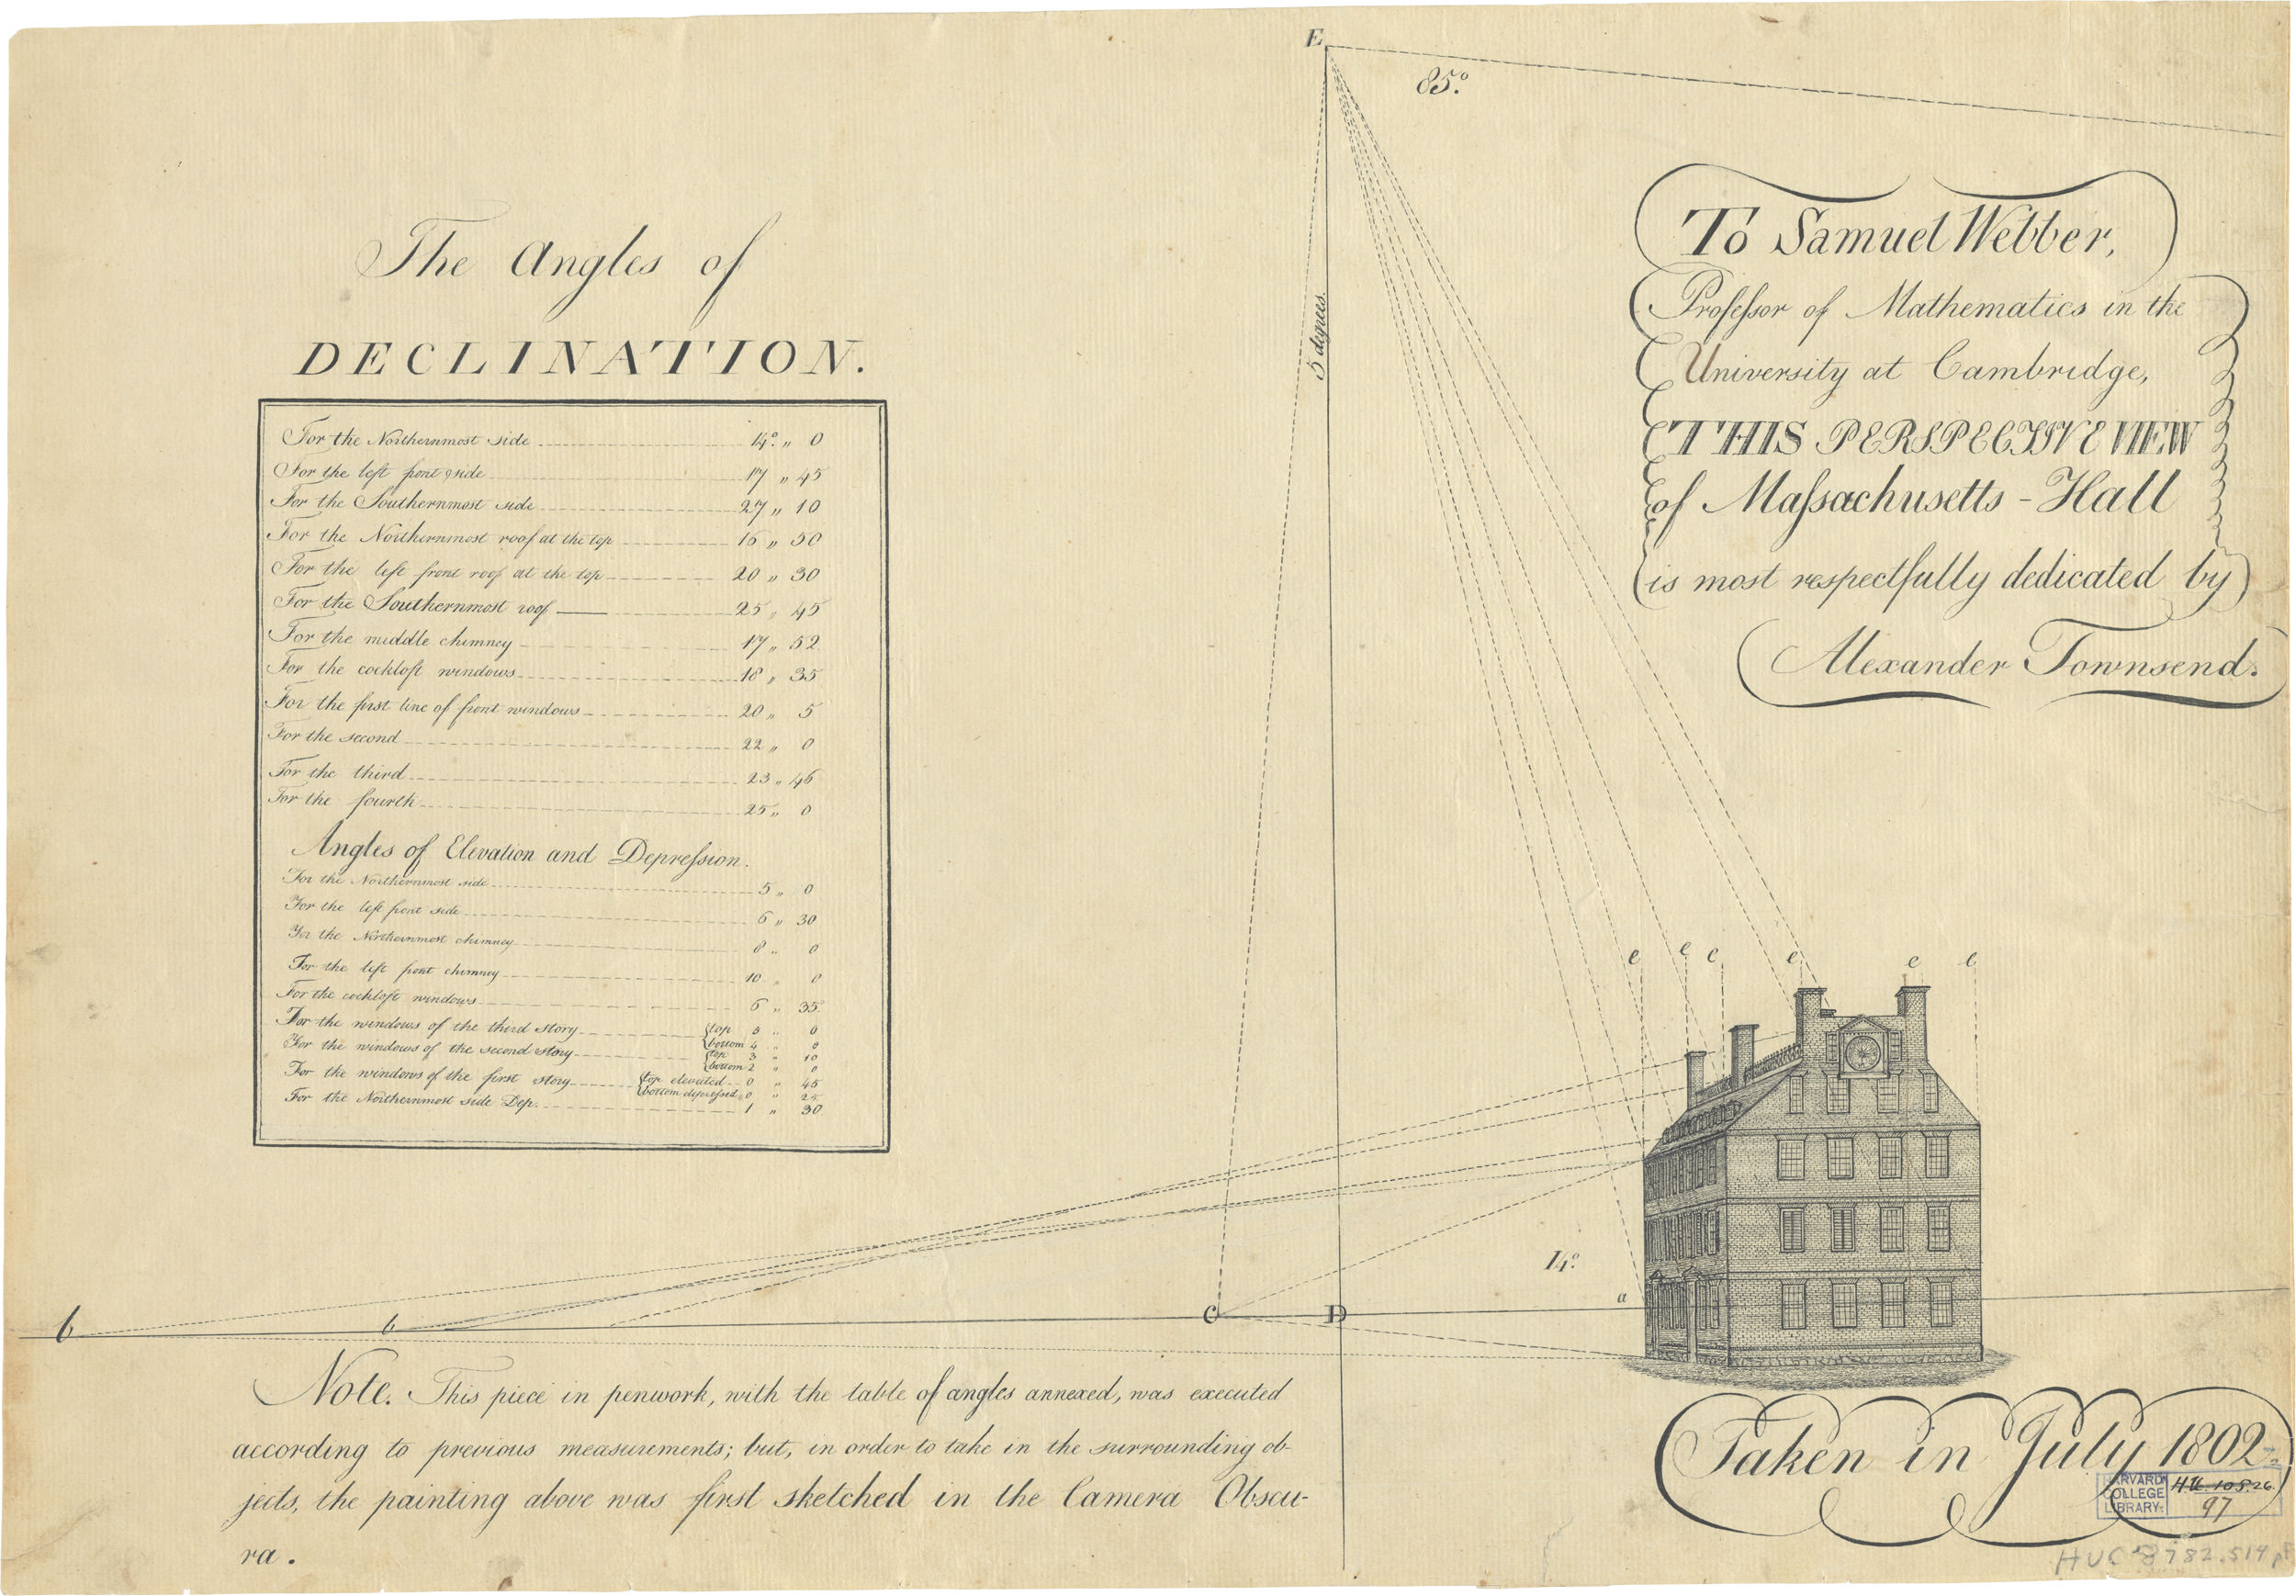 The Angles of
DECLINATION.
For the Northernmost side 14° „ 0
For the left front side 17 „ 45
For the Southernmost side 27 „ 10
For the Northernmost roof at the top 16 „ 30
For the left front roof at the top 20 „ 30
For the Southernmost roof 25 „ 45
For the middle chimney 17 „ 52
For the cockloft windows 18 „ 35
For the first line of front windows 20 „ 5
For the second 22 „ 0
For the third 23 „ 46
For the fourth 25 „ 0
Angles of Elevation and Depression.
For the Northernmost side 5 „ 0
For the left front side 6 „ 30
For the Northernmost chimney 8 „ 0
For the left front chimney 10 „ 0
For the cockloft windows 6 „ 35
For the windows of the third story top „ 0
bottom 4 „ 0
For the windows of the second story top 3 „ 10
bottom 2 „ 0
For the windows of the first story top elevated 0 „ 45
bottom depressed 0 „ 25
For the Northernmost side Dep. 1 „ 30
E
85°.
5 degrees.
To Samuel Webber,
Professor of Mathematics in the
University at Cambridge,
THIS PERSPECTIVE VIEW
of Massachusetts-Hall
is most respectfully dedicated by
Alexander Townsend.
e e e e e e
14°.
b b C D a
Note. This piece in penwork, with the table of angles annexed, was executed
according to previous measurements; but, in order to take in the surrounding ob-
jects, the painting above was first sketched in the Camera Obscu-
ra.
Taken in July 1802.
HARVARD
COLLEGE
LIBRARY
H.U. 105.26.
97
HUC 8782.514